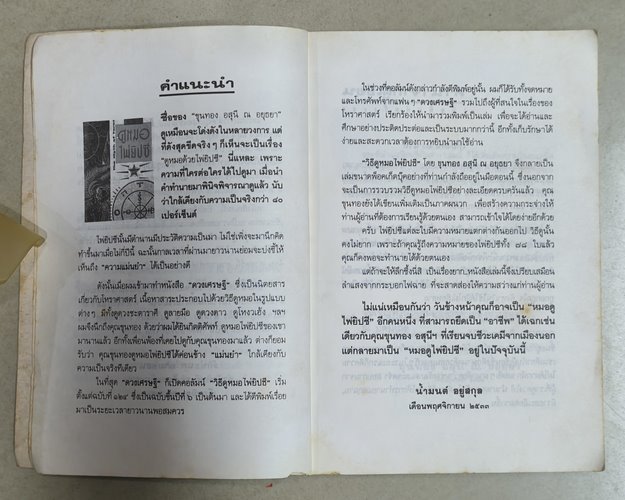 คำแนะนำ
ดูหมอ
ไพ่ยิปซี
ชื่อของ "ขุนทอง อสุนี ณ อยุธยา"
ดูเหมือนจะโด่งดังในหลายวงการ แต่
ที่ดังสุดขีดจริง ๆ ก็เห็นจะเป็นเรื่อง
"ดูหมอด้วยไพ่ยิปซี" นี่แหละ เพราะ
ความที่ใครต่อใครได้ไปดูมา เมื่อนำ
คำทำนายมาพินิจพิจารณาดูแล้ว นับ
ว่าใกล้เคียงกับความเป็นจริงกว่า ๘๐
เปอร์เซ็นต์
ไพ่ยิปซีนั้นมีตำนานมีประวัติความเป็นมา ไม่ใช่เพิ่งจะมานึกคิด
ทำขึ้นมาเมื่อไม่กี่ปีนี้ ฉะนั้นกาลเวลาที่ผ่านมายาวนานย่อมจะบ่งชี้ให้
เห็นถึง "ความแม่นยำ" ได้เป็นอย่างดี
ดังนั้นเมื่อผมเข้ามาทำหนังสือ "ดวงเศรษฐี" ซึ่งเป็นนิตยสาร
เกี่ยวกับโหราศาสตร์ เนื้อหาสาระประกอบไปด้วยวิธีดูหมอในรูปแบบ
ต่างๆ มีทั้งดูดวงชะตาราศี ดูลายมือ ดูดวงดาว ดูโหงวเฮ้ง ฯลฯ
ผมจึงนึกถึงคุณขุนทอง ด้วยว่าผมได้ยินกิตติศัพท์ ดูหมอไพ่ยิปซีของเขา
มานานแล้ว อีกทั้งเพื่อนพ้องที่เคยไปดูกับคุณขุนทองมาแล้ว ต่างก็ยอม
รับว่า คุณขุนทองดูหมอไพ่ยิปซีได้ค่อนข้าง "แม่นยำ" ใกล้เคียงกับ
ความเป็นจริงทีเดียว
ในที่สุด "ดวงเศรษฐี" ก็เปิดคอลัมน์ "วิธีดูหมอไพ่ยิปซี" เริ่ม
ตั้งแต่ฉบับที่ ๑๒๙ ซึ่งเป็นขึ้นปีที่ ๖ เป็นต้นมา และได้ตีพิมพ์เรื่อย
มาเป็นระยะเวลายาวนานพอสมควร
ในช่วงที่คอลัมน์ดังกล่าวกำลังตีพิมพ์อยู่นั้น ผมก็ได้รับทั้งจดหมาย
และโทรศัพท์จากแฟนๆ "ดวงเศรษฐี" รวมไปถึงผู้ที่สนใจในเรื่องของ
โหราศาสตร์ เรียกร้องให้นำมารวมพิมพ์เป็นเล่ม เพื่อจะได้อ่านและ
ศึกษาอย่างประติดประต่อและเป็นระบบมากกว่านี้ อีกทั้งเก็บรักษาได้
ง่ายและสะดวกเวลาต้องการหยิบนำมาใช้อ่าน
"วิธีดูหมอไพ่ยิปซี" โดย ขุนทอง อสุนี ณ อยุธยา จึงกลายเป็น
เล่มขนาดพ็อคเก็ตบุ๊คอย่างที่ท่านกำลังถืออยู่ในมือตอนนี้ ซึ่งนอกจาก
จะเป็นการรวบรวมวิธีดูหมอไพ่ยิปซีอย่างละเอียดครบครันแล้ว คุณ
ขุนทองยังได้เขียนเพิ่มเติมเป็นภาคผนวก เพื่อสร้างความกระจ่างให้
ท่านผู้อ่านที่ต้องการเรียนรู้ด้วยตนเอง สามารถเข้าใจได้โดยง่ายอีกด้วย
ครับ ไพ่ยิปซีแต่ละใบมีความหมายแตกต่างกันออกไป วิธีดูนั้น
คงไม่ยาก เพราะถ้าคุณรู้ถึงความหมายของไพ่ยิปซีทั้ง ๗๘ ใบแล้ว
คุณก็คงพอจะทำนายได้ด้วยตนเอง
แต่ถ้าจะให้ลึกซึ้งนี่สิ เป็นเรื่องยาก..หนังสือเล่มนี้จึงเปรียบเสมือน
ลำแสงจากกระบอกไฟฉาย ที่จะสาดส่องให้ความสว่างแก่ท่านผู้อ่าน
ไม่แน่เหมือนกันว่า วันข้างหน้าคุณก็อาจเป็น "หมอดู
ไพ่ยิปซี" อีกคนหนึ่ง ที่สามารถยึดเป็น "อาชีพ" ได้เฉกเช่น
เดียวกับคุณขุนทอง อสุนีฯ ที่เรียนจบชีวะเคมีจากเมืองนอก
แต่กลายมาเป็น "หมอดูไพ่ยิปซี" อยู่ในปัจจุบันนี้
น้ำมนต์ อยู่สกุล
เดือนพฤศจิกายน ๒๕๓๓